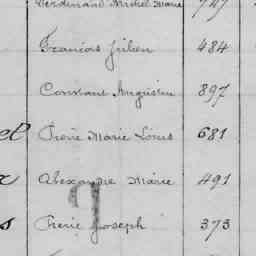 Ferdinand Michel Marie 747
François Julien 484
Constant Augustin 897
el Pierre Marie Louis 681
Alexandre Marie 491
s Pierre Joseph 373